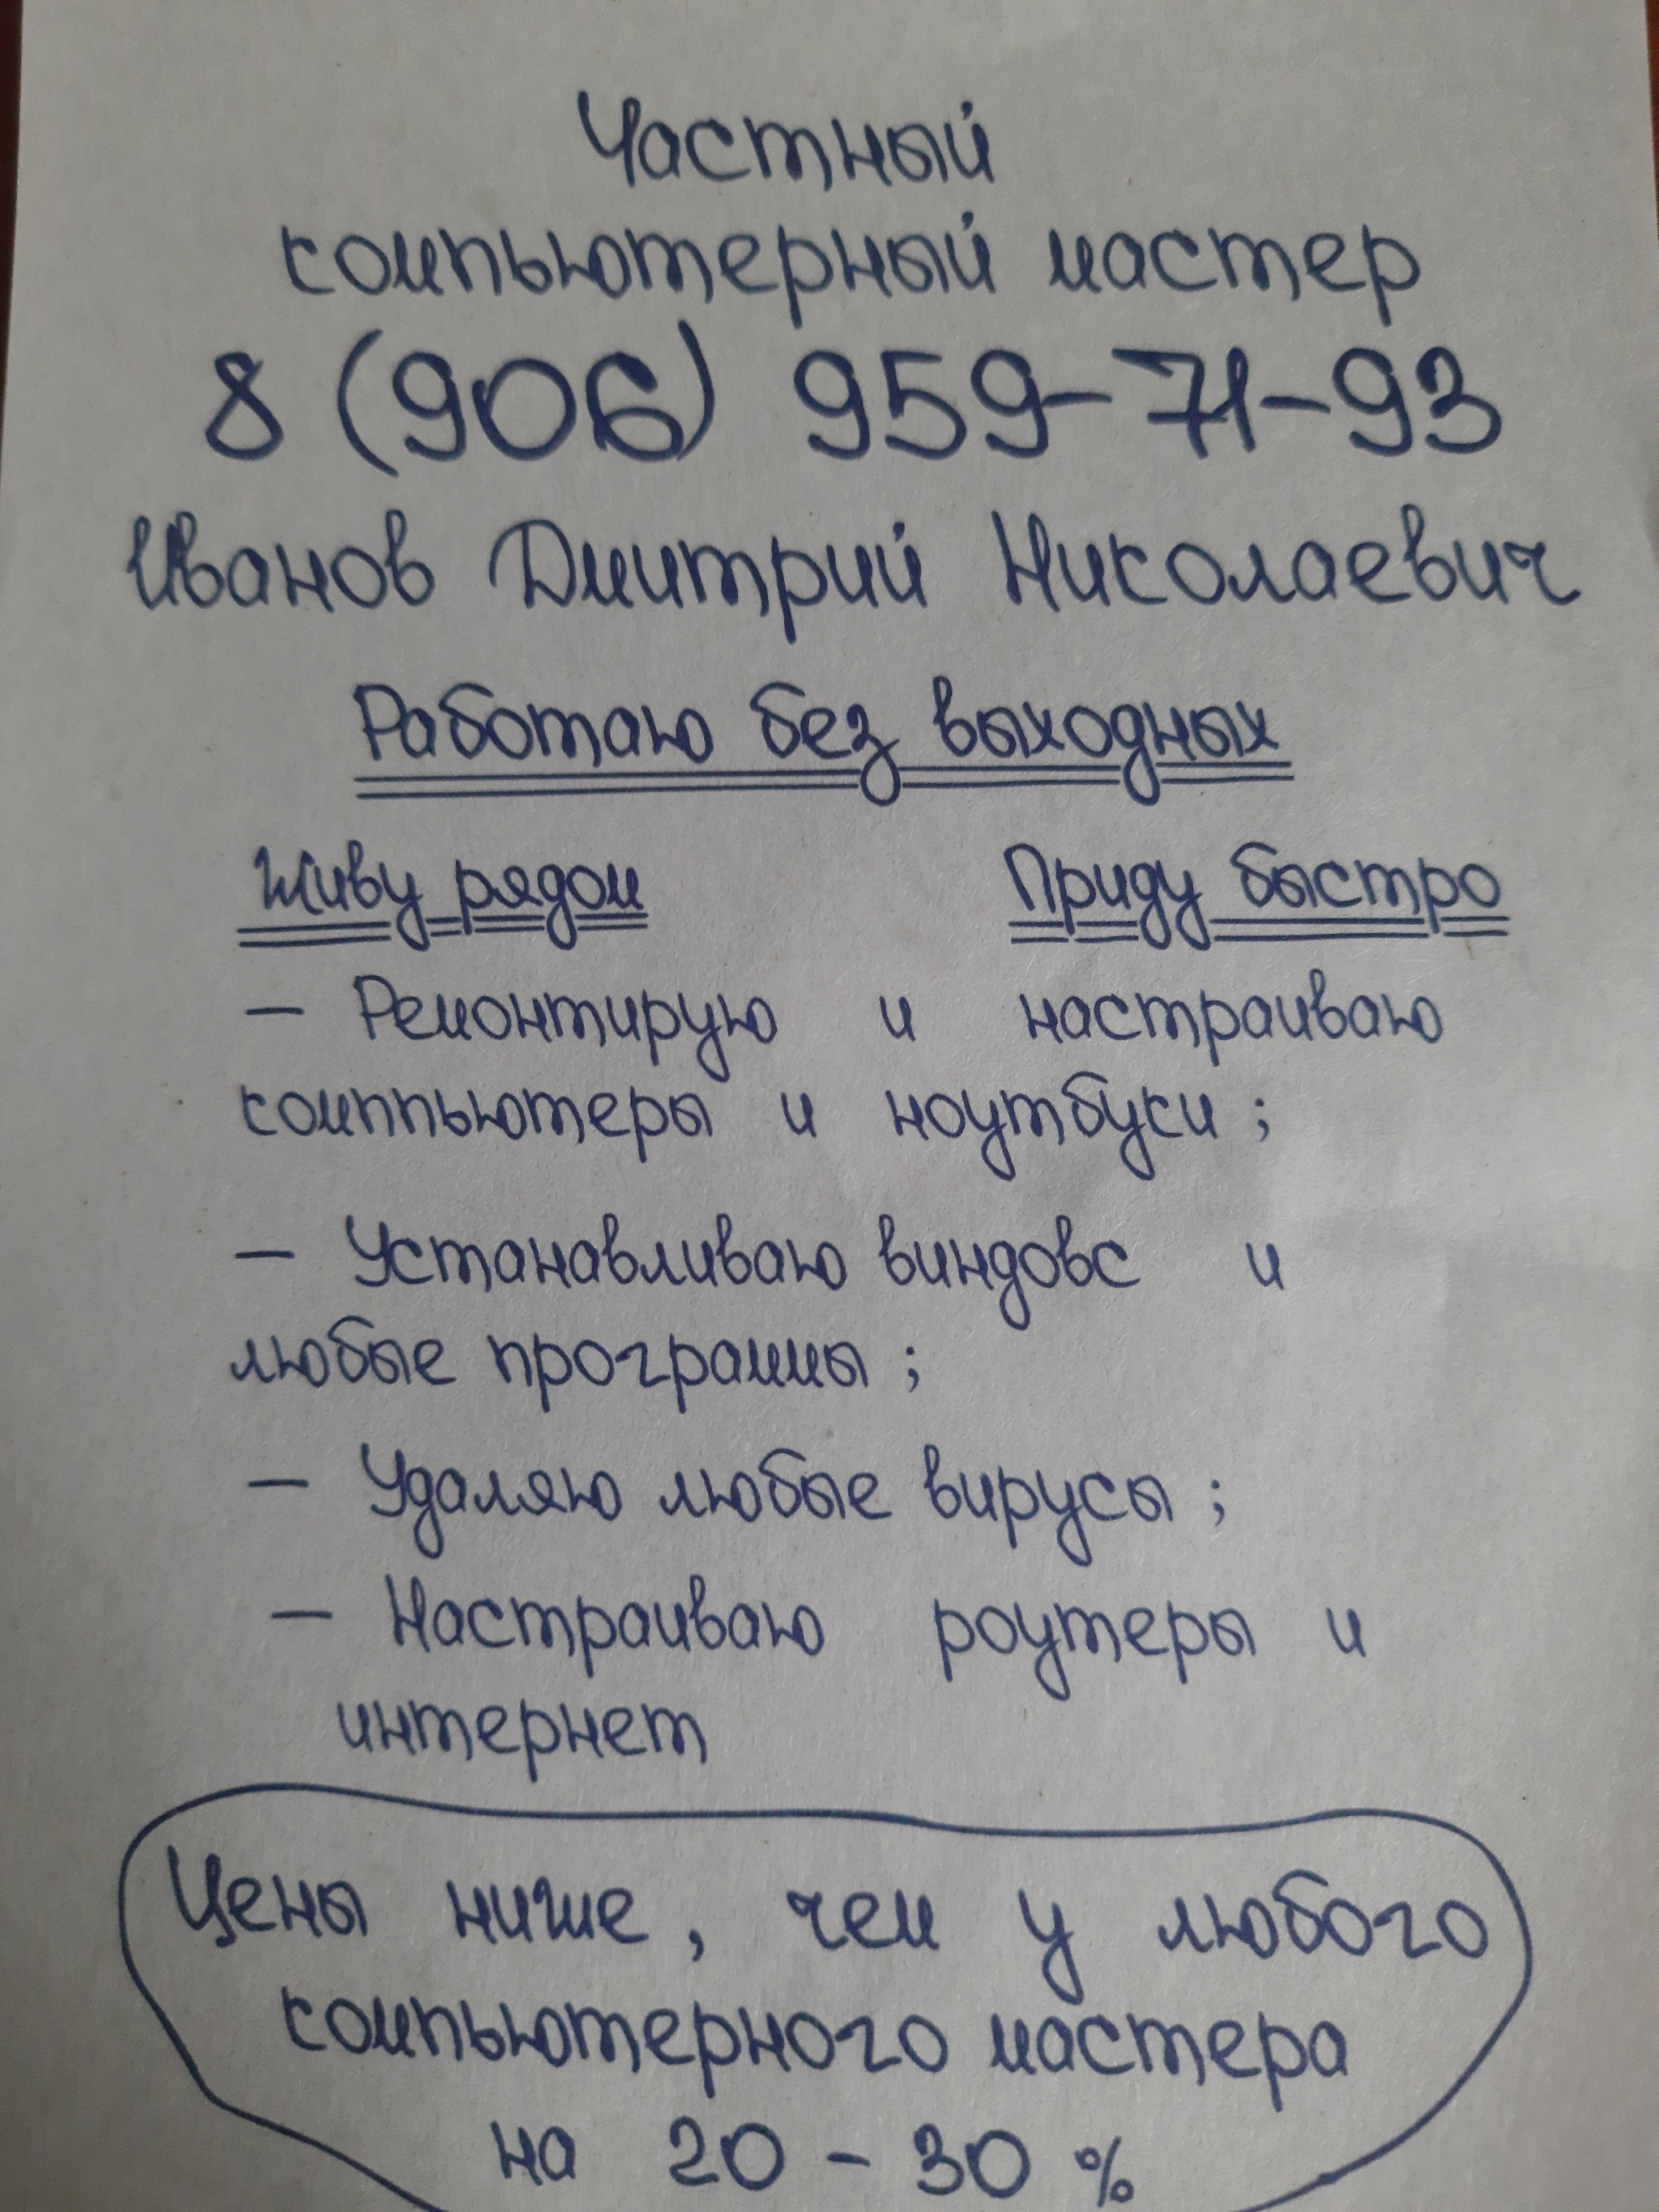 Частный
компьютерный мастер
8 (906) 959-71-93
Иванов Дмитрий Николаевич
Работаю без выходных
Живу рядом Приду быстро
— Ремонтирую и настраиваю
комппьютеры и ноутбуки;
— Устанавливаю виндовс и
любые программы;
— Удаляю любые вирусы;
— Настраиваю роутеры и
интернет
Цены ниже, чем у любого
компьютерного мастера
на 20 - 30 %